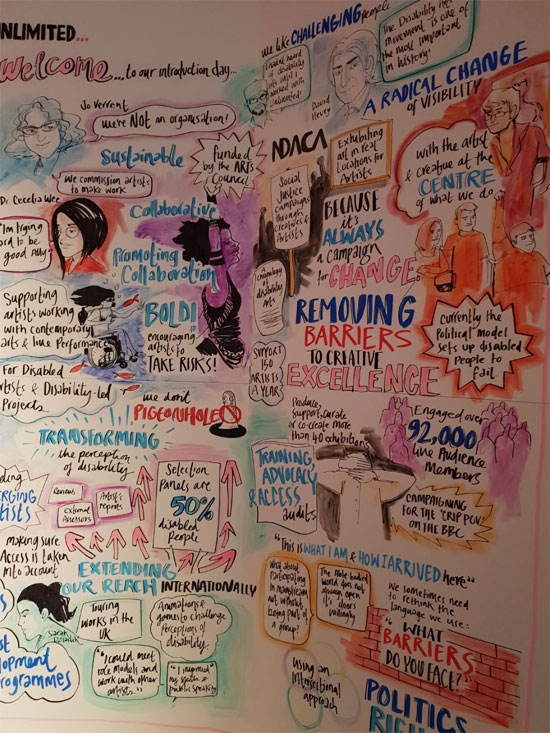 NLIMITED...
Welcome
...to our introduction day...
Jo Verrent
We're NOT an organisation!
Sustainable
funded
by the ARTS
Council
We commission artists
to make work
Dr Cecelia Wee
"I'm trying
ard to be
good Ally"
Collaborative
Promoting
Collaboration
Supporting
artists working
with Contemporary
arts & live Performance
BOLD!
encouraging
artists to
TAKE RISKS!
For Disabled
rtists & Disability-led
Projects
we don't
PIGEONHOLE
TRANSFORMING
the perception
of disability
RGING
tists
Reviews
External
Assessors
Artist's
reports
Selection
Panels are
50%
disabled
people
making sure
Access is taken
into account
EXTENDING
OUR REACH INTERNATIONALLY
Sarah
Touring
works in the
UK
Animations &
games to challenge
Perceptions of
disability.
lopment
rogrammes
"I could meet
role models and
work with other
artists."
"I improved
my
public speaking
We like CHALLENGING people
until I
worked with
Unlimited!
David
Hevey
The Disability Arts
movement is one of
the most important
in history!
A RADICAL CHANGE
OF VISIBILITY
NDACA
Exhibiting
art in real
locations for
Artists
Social
Justice
campaigns
through
creatives &
Artists
With the artist
& Creative at the
CENTRE
of what we do
BECAUSE
it's
ALWAYS
a Campaign
for CHANGE
A
chronology
of
disability
Arts
REMOVING
BARRIERS
TO CREATIVE
EXCELLENCE
Currently the
Political model
sets up disabled
People to
fail
SUPPORT
150
ARTISTS
A YEAR
Produce,
Support, curate
or co-create more
than 40 exhibitions
Engaged over
92,000
live Audience
Members
TRAINING,
ADVOCACY
& ACCESS
audits
CAMPAIGNING
FOR THE 'CRIP POV'
ON THE BBC
"This is WHAT I AM & HOW I ARRIVED here"
What about
Participating
in mainstream
not without
being part of
a group?
The Able bodied
world does not
always open
it's doors
willingly
We sometimes
need to
rethink the
language we use:
"WHAT
BARRIERS
DO YOU FACE?"
Using an
Intersectional
approach
POLITICS